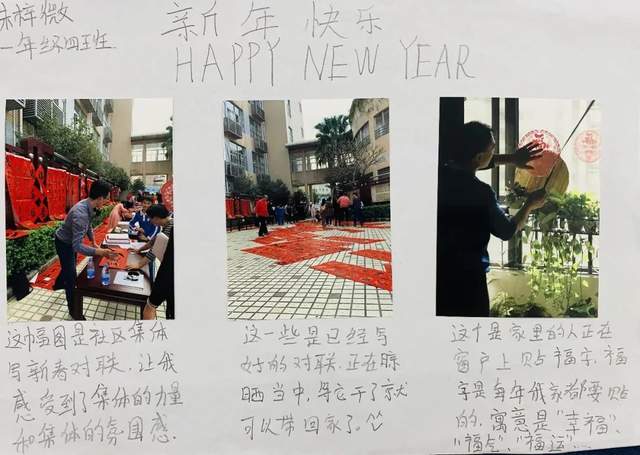 梓微
一年级四班
新年快乐
HAPPY NEW YEAR
这幅图是社区集体
写新春对联,让我
感受到了集体的力量
和集体的氛围感.
这一些是已经写
好的对联,正在晾
晒当中,等它干了就
可以带回家了。
这个是家里的人正在
窗户上贴福字,福
字是每年我家都要贴
的,寓意是“幸福”、
“福气”、“福运”……